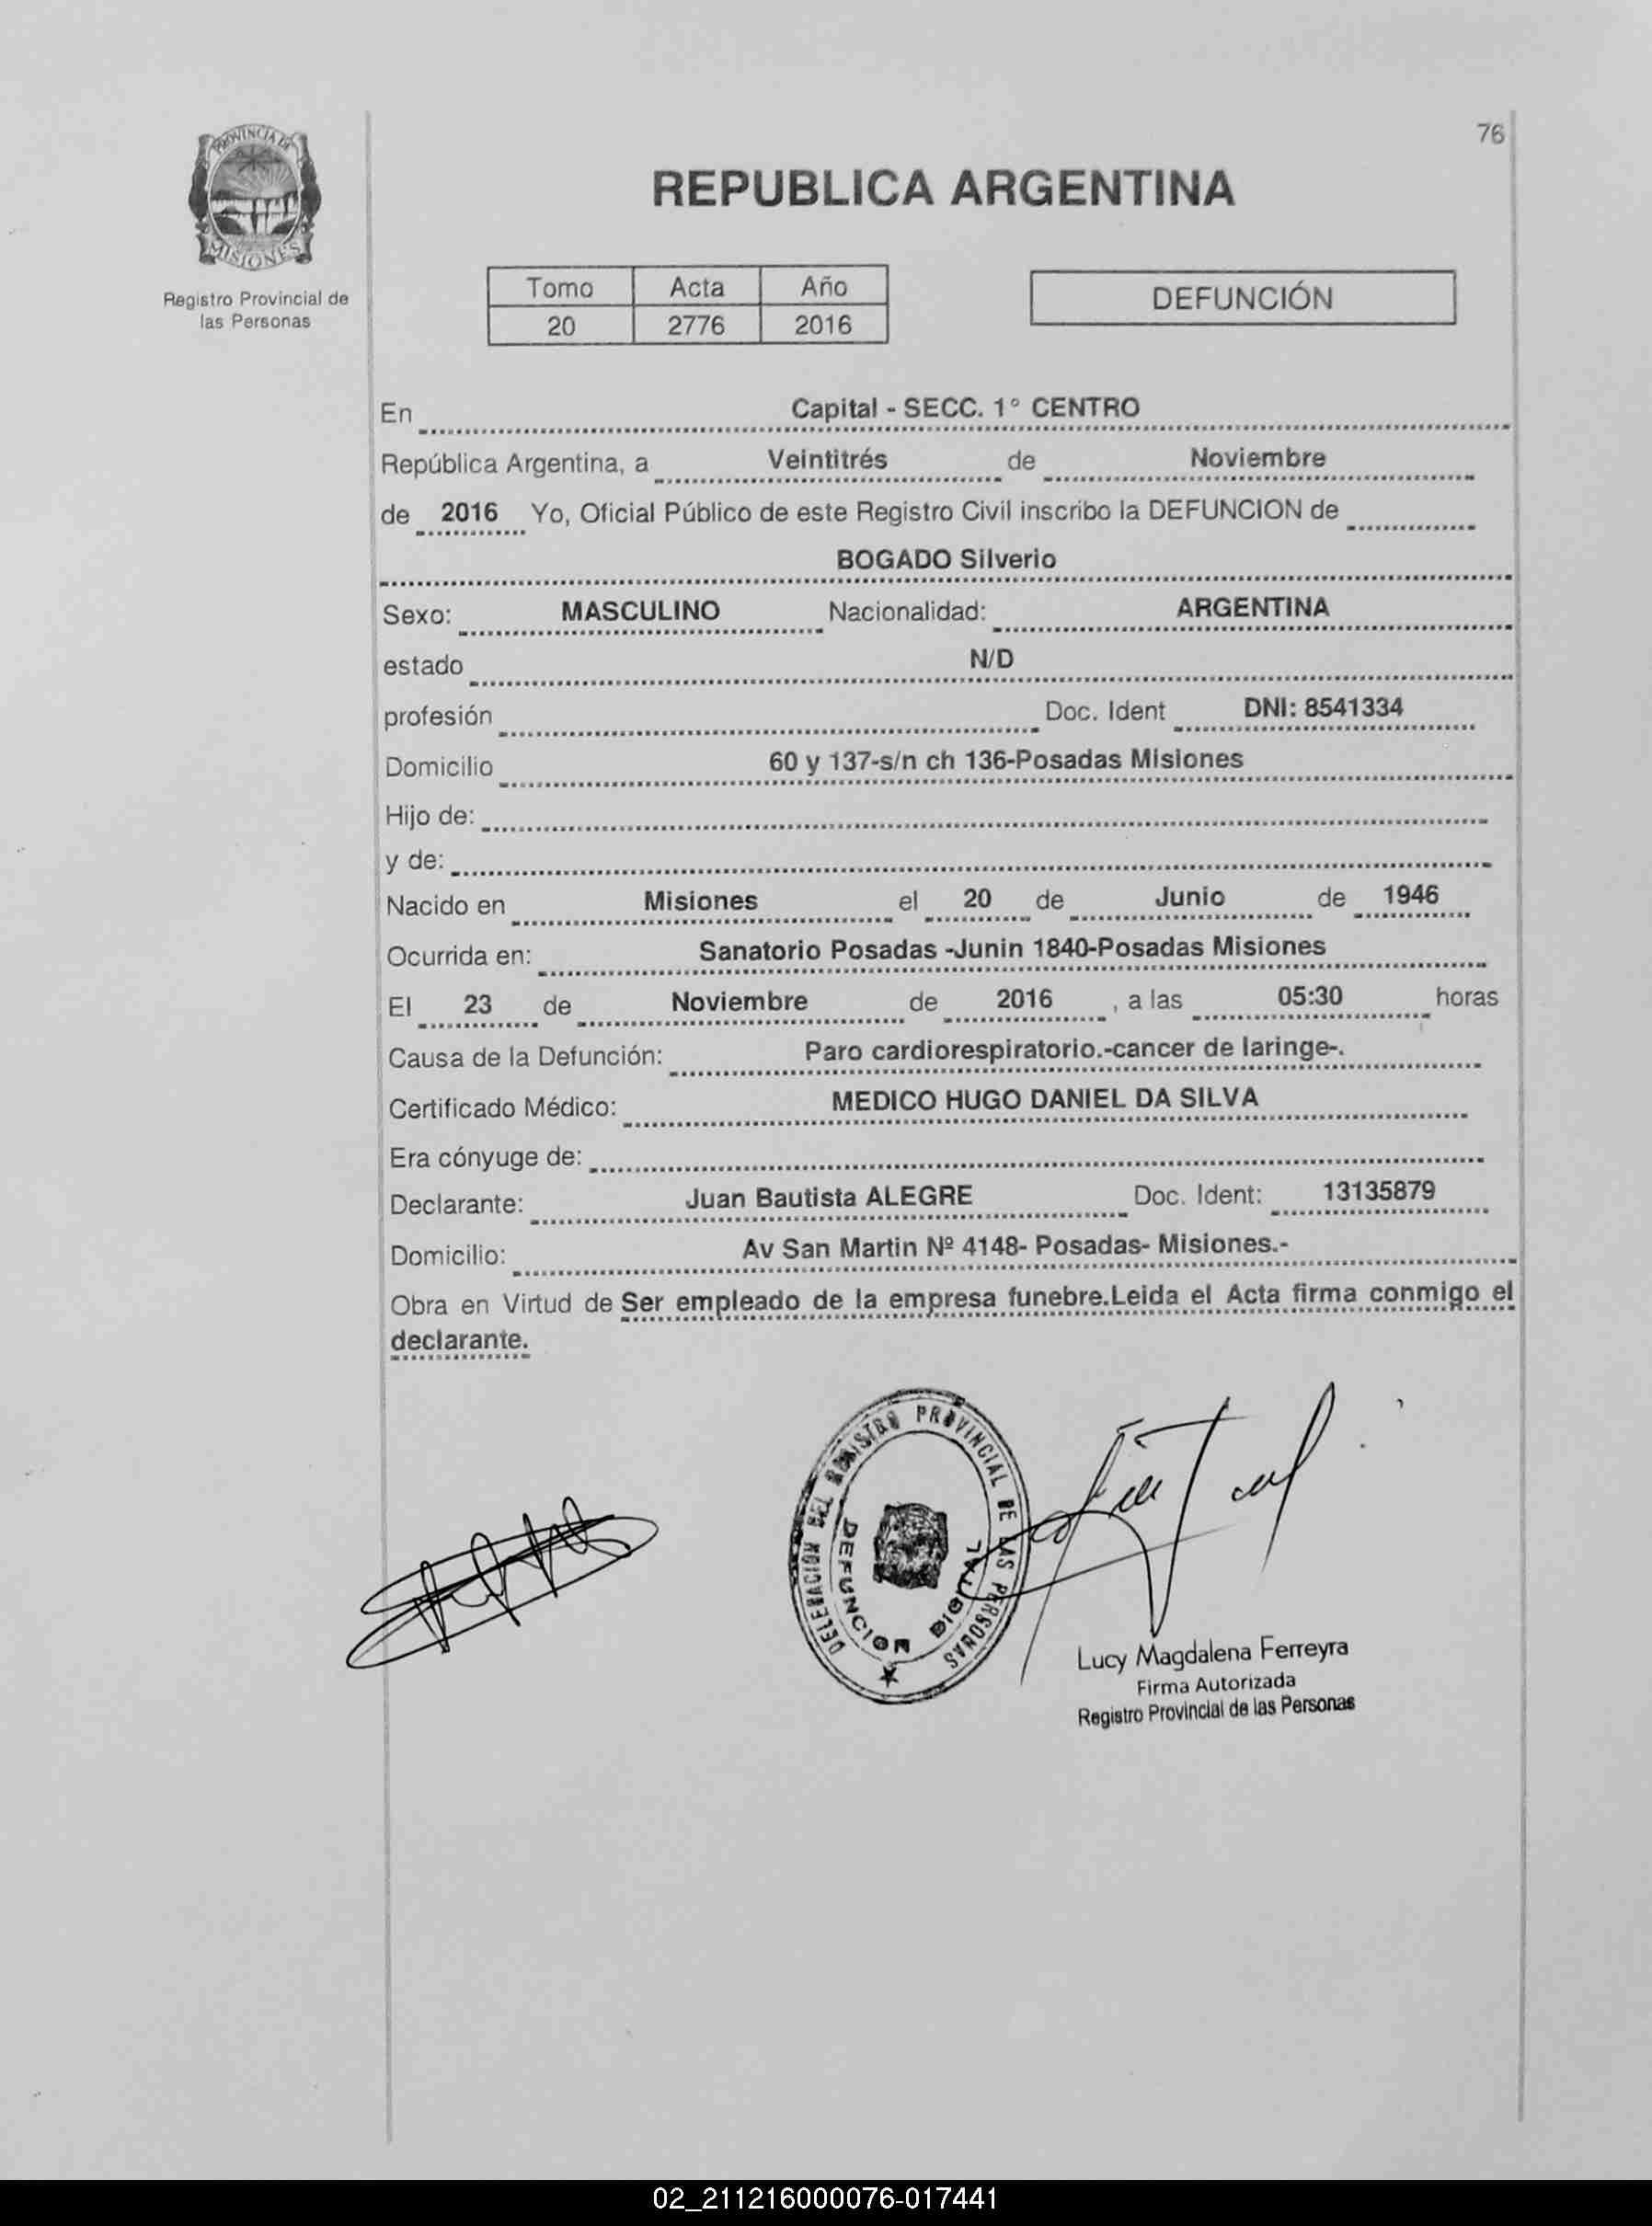 76
PROVINCIA DE
MISIONES
Registro Provincial de
las Personas
REPUBLICA ARGENTINA
Tomo Acta Año
20 2776 2016
DEFUNCIÓN
En Capital - SECC. 1° CENTRO
República Argentina, a Veintitrés de Noviembre
de 2016 Yo, Oficial Público de este Registro Civil inscribo la DEFUNCION de
BOGADO Silverio
Sexo: MASCULINO Nacionalidad: ARGENTINA
estado N/D
profesión Doc. Ident DNI: 8541334
Domicilio 60 y 137-s/n ch 136-Posadas Misiones
Hijo de:
y de:
Nacido en Misiones el 20 de Junio de 1946
Ocurrida en: Sanatorio Posadas -Junin 1840-Posadas Misiones
El 23 de Noviembre de 2016 , a las 05:30 horas
Causa de la Defunción: Paro cardiorespiratorio.-cancer de laringe-.
Certificado Médico: MEDICO HUGO DANIEL DA SILVA
Era cónyuge de:
Declarante: Juan Bautista ALEGRE Doc. Ident: 13135879
Domicilio: Av San Martin Nº 4148- Posadas- Misiones.-
Obra en Virtud de Ser empleado de la empresa funebre.Leida el Acta firma conmigo el
declarante.
DELEGACION DEL REGISTRO PROVINCIAL DE LAS PERSONAS
DEFUNCION DIGITAL
Lucy Magdalena Ferreyra
Firma Autorizada
Registro Provincial de las Personas
02_211216000076-017441